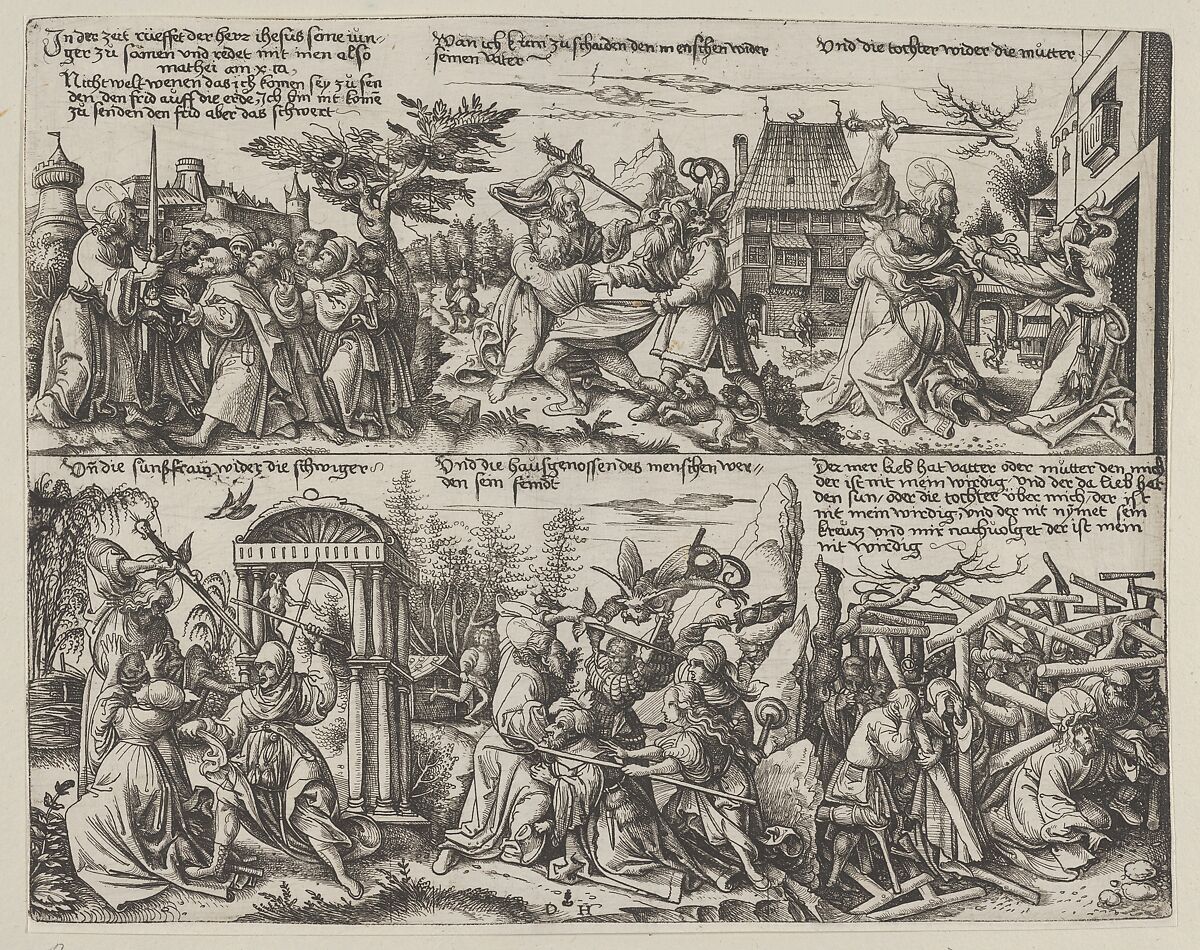 In der zeit rüeffet der herr ihesus seine iun=
ger zu samen vnd redet mit inen also
mathei am x ca,
Nicht welt wenen das ich komen sey zu sen
den, den frid auff die erde, Ich bin nit kome
zu senden den frid aber das schwert
Wan ich kum zu schaiden den menschen wider
seinen vater
Vnd die tochter wider die mutter
Vn die sunßfraw wider die schwiger
Vnd die hausgenossen des menschen wer=
den sein feindt
Der mer lieb hat vatter oder mutter den mich
der ist nit mein wirdig vnd der da lieb hat
den sun/ oder die tochter über mich, der ist
nit mein wirdig, vnd der nit nymet sein
kreutz vnd mir nachuolget der ist mein
nit wirdig
D H